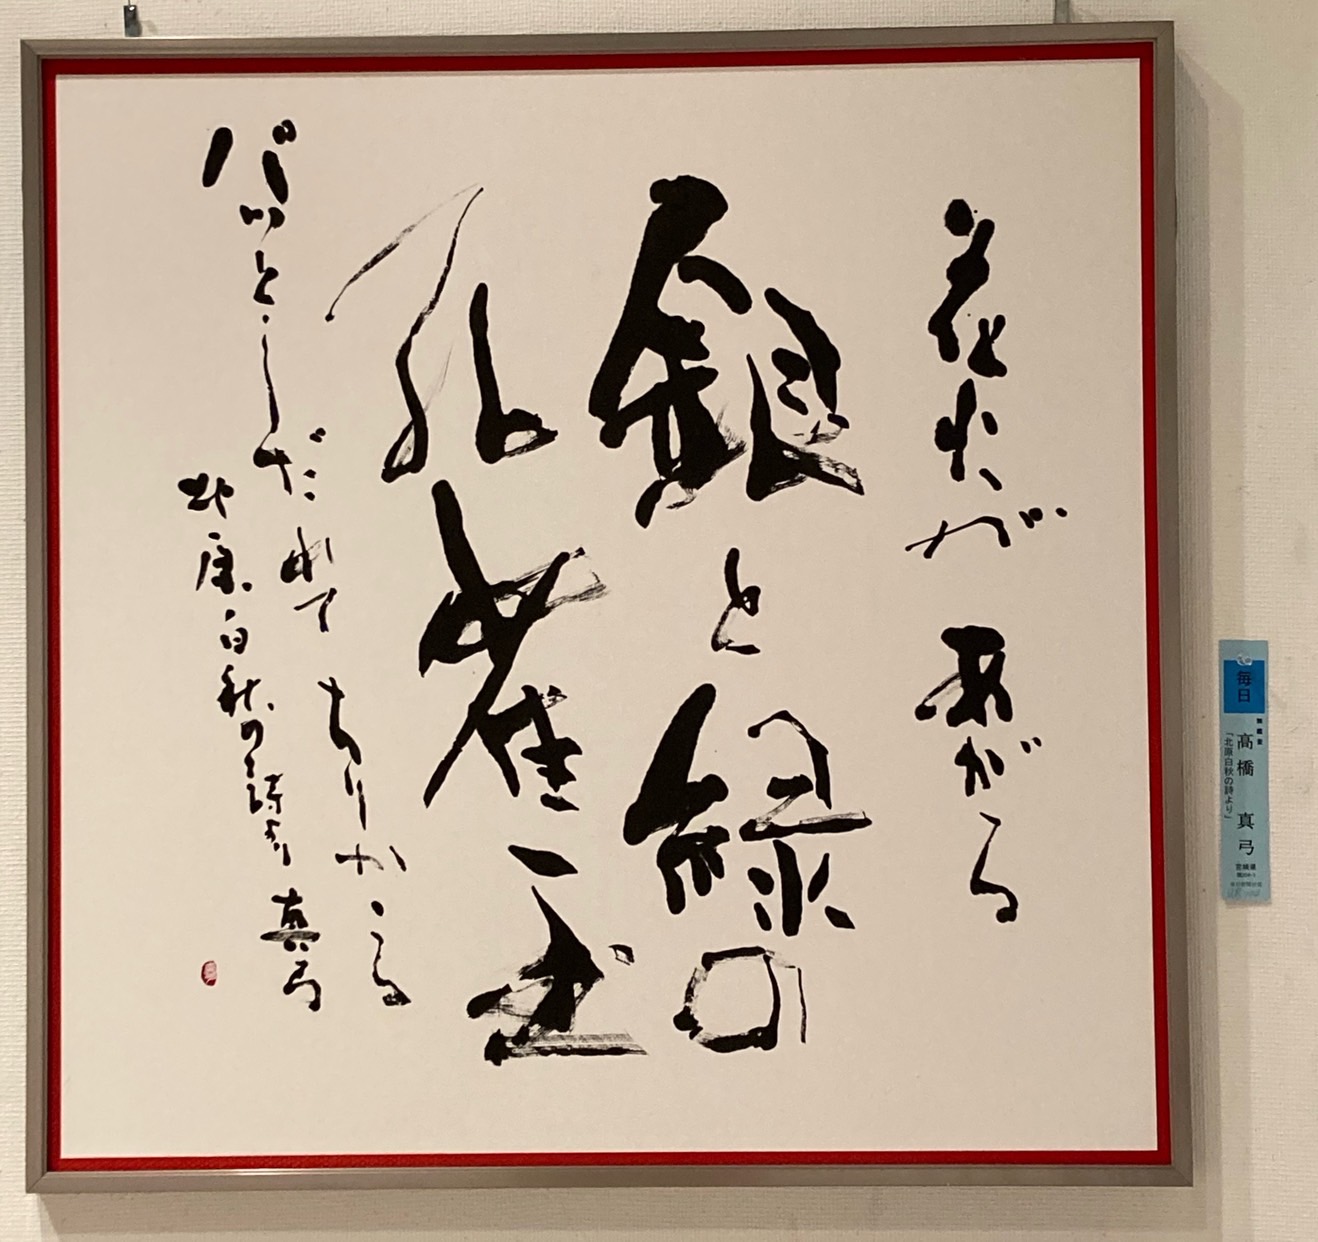 花火が あがる
銀と緑の
孔雀玉
パッとしだれて ちりかかる
北原白秋の詩より 真弓
毎日
高橋 真弓
「北原白秋の詩より」